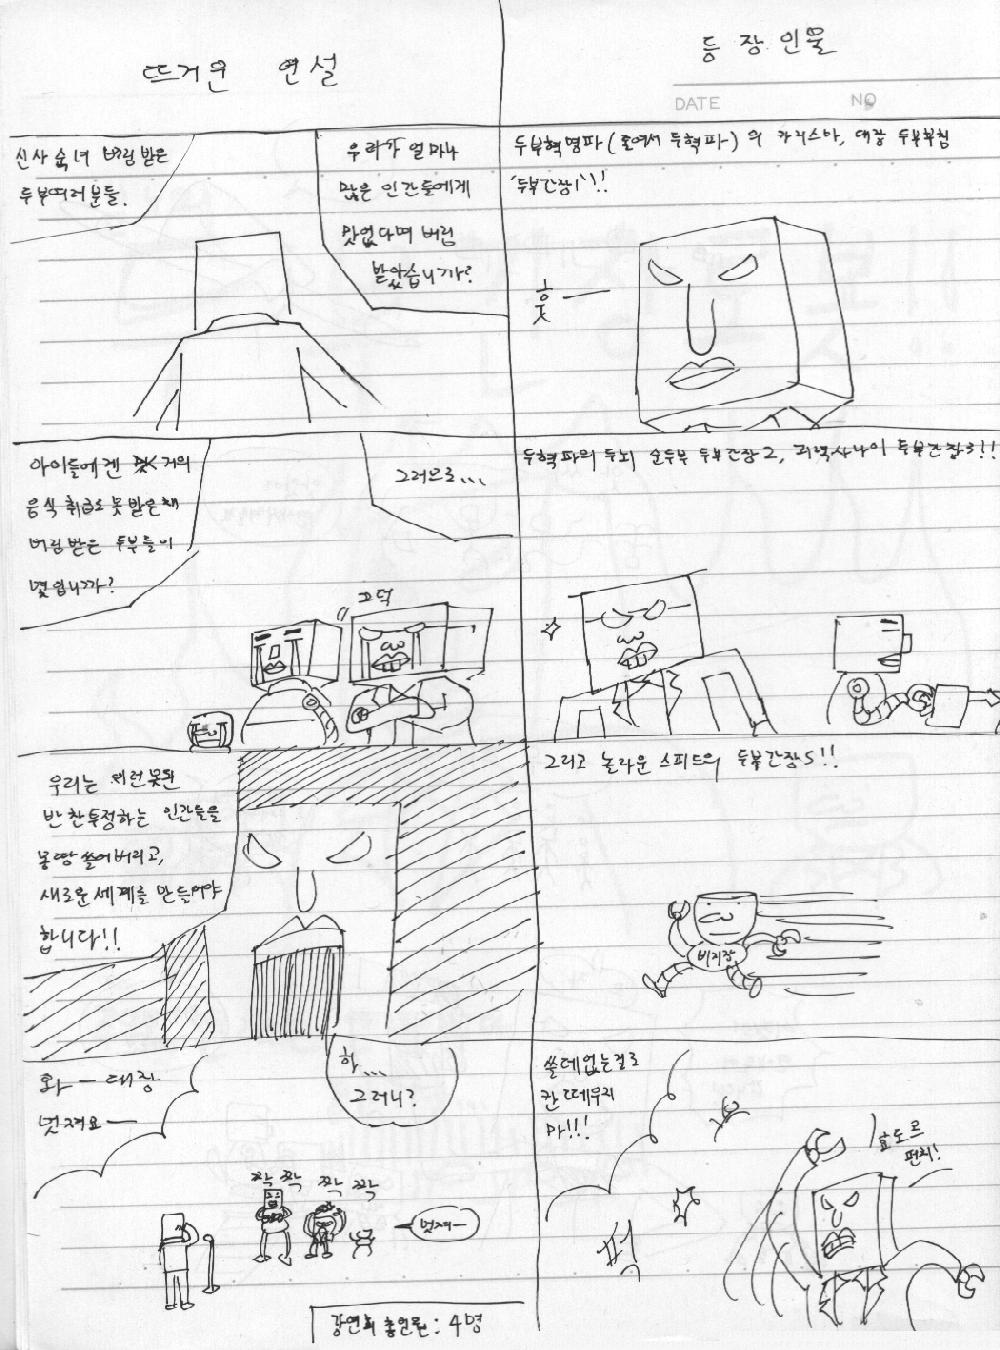 뜨거운 연설
신사 숙녀 버림받은
두부여러분들.
우리가 얼마나
많은 인간들에게
맛없다며 버림
받았습니까?
아이들에겐
음식 취급도 못 받은채
버림받은 두부들이
몇입니까?
그러므로...
끄덕
우리는 저런 못된
반찬투정하는 인간들을
몽땅 쓸어버리고,
새로운 세계를 만들어야
합니다!!
와ー 대장
멋져요ー
하...
그러니?
짝 짝 짝 짝
멋져ー
강연회 총인원 : 4명
등장인물
DATE NO
두부혁명파 (줄여서 두혁파) 의 카리스마, 대장 두부부침
'두부간장1'!!
훗ー
두혁파의 두뇌 순두부 두부간장2, 괴력사나이 두부간장3!!
그리고 놀라운 스피드의 두부간장5!!
비지장
쓸데없는걸로
칸 떼우지
마!!!
펀치!